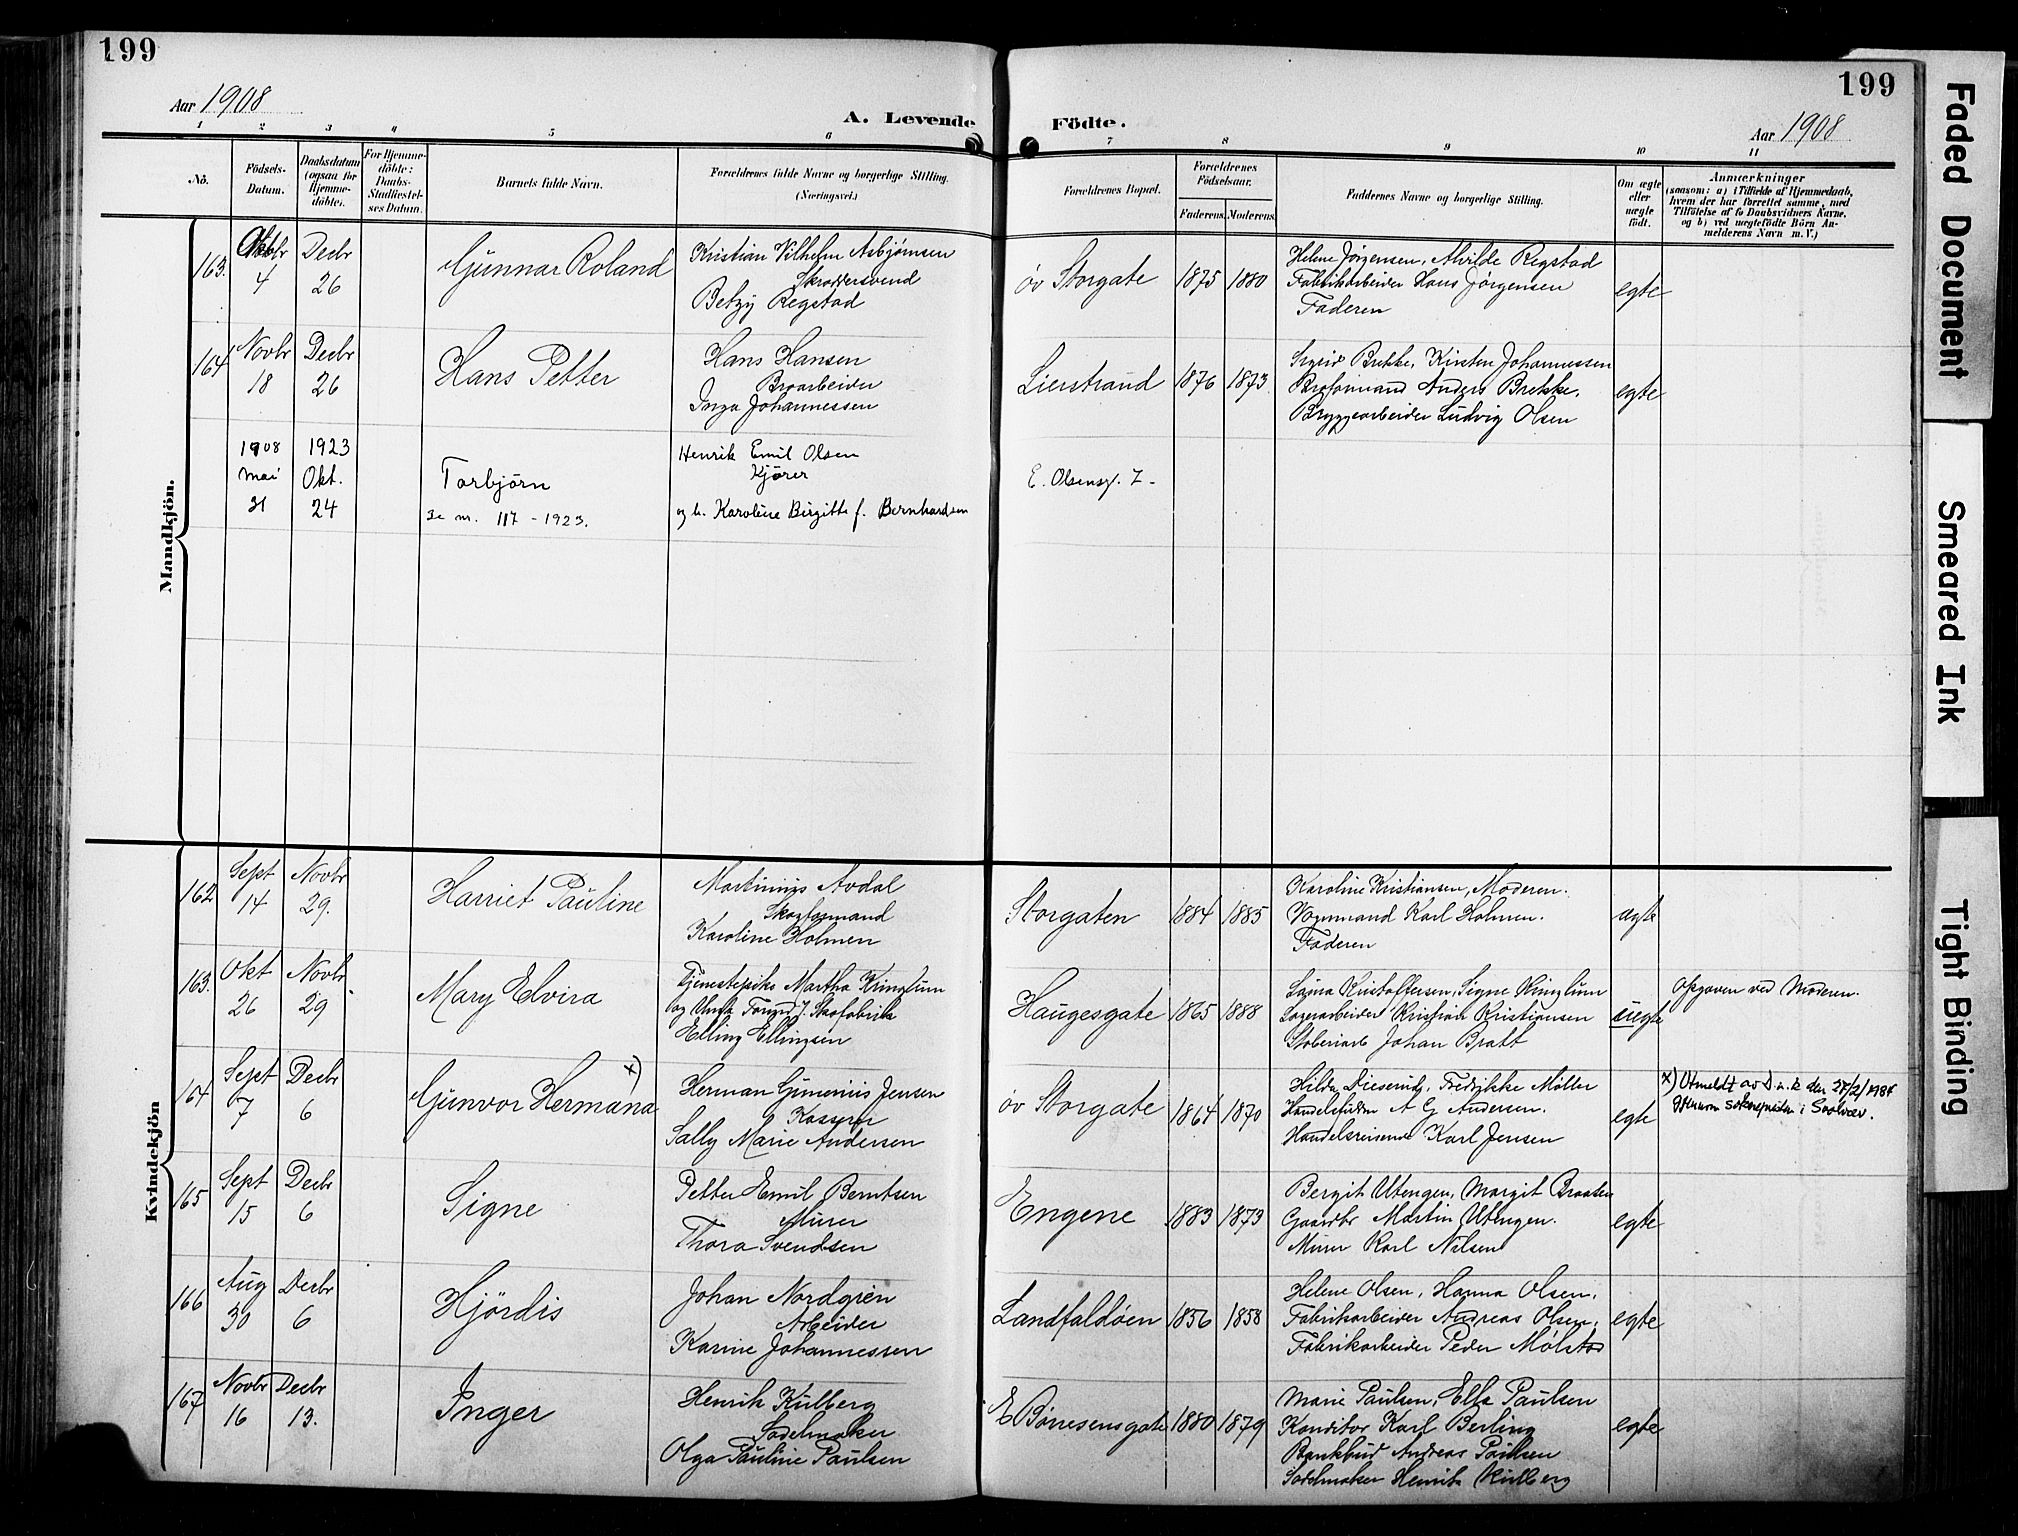 199
199
Aar 1908
A. Levende Födte.
Aar 1908
1 2 3 4 5 6 7 8 9 10 11
Nô.
Födsels-Datum.
Daabsdatum (ogsaa for Hjemme-döbte).
For Hjemme-döbte: Daabs-Stadfæstel-ses Datum.
Barnets fulde Navn.
Forældrenes fulde Navne og borgerlige Stilling. (Næringsvei.)
Forældrenes Bopæl.
Forældrenes Födselsaar.
Faderens. Moderens.
Faddernes Navne og borgerlige Stilling.
Om ægte eller uægte födt.
Anmærkninger
(saasom: a) i Tilfælde af Hjemmedaab, hvem der har forrettet samme, med Tilföielse af to Daabsvidners Navne, og b) ved uegtefödte Börn Anmelderens Navn m. V.)
Mandkjön.
163. Oktbr 4 Decbr 26 Gunnar Roland
Kristian Vilhelm Asbjørnsen
Skræddersvend
Betzy Regstad
øv Storgate 1875 1880
Helene Jørgensen, Alvilde Regstad
Fabrikarbeider Hans Jørgensen
Faderen
egte
164 Novbr 18 Decbr 26 Hans Petter
Hans Hansen
Broarbeider
Inga Johannessen
Lierstrand 1876 1873
Sigrid Brekke, Kirsten Johannessen
Broformand Anders Brekke.
Bryggearbeider Ludvig Olsen
egte
1908 mai 31 1923 Okt. 24
Torbjørn
se nr. 117 - 1923.
Henrik Emil Olsen
Kjører
og h. Karoline Birgitte f. Bernhardsen
E. Olsensg. 7 -
Kvindekjön
162 Sept 14 Novbr 29. Harriet Pauline
Martinius Avdal
Skogformand
Karoline Holmen
Storgaten 1884 1885
Karoline Kristiansen, Moderen.
Vognmand Karl Holmen.
Faderen
egte
163. Okt 26 Novbr 29 Mary Elvira
Tjenestepike Martha Kringlum
Skofabrik
Elling Ellingsen
Haugesgate 1865 1888
Laura Kristoffersen, Signe Kringlum
Lagerarbeider Kristian Kristiansen
Støberiarb Johan Bratt
uegte
Opgaven ved Moderen.
164 Sept 7 Decbr 6 Gunvor Hermana x)
Herman Gunerius Jensen
Kasserer
Sally Marie Andersen
øv Storgate 1864 1870
Hilda Dieserud, Fredrikke Møller
Handelsfuldm A G Andersen.
Handelsreisende Karl Jensen
egte
x) Utmeldt av D.n.k den 27/2/1984
165 Sept 15 Decbr 6 Signe
Petter Emil Berntsen
Murer
Thora Svendsen
Engene 1883 1873
Bergit Utengen, Margit Braaten
Gaardbr Martin Utengen.
Murer Karl Nilsen
egte
166 Aug 30 Decbr 6 Hjørdis
Johan Nordgren
Arbeider
Karine Johannessen
Landfaldøen 1856 1858
Helene Olsen, Hanna Olsen,
Fabrikarbeider Andreas Olsen,
Fabrikarbeider Peder Mølstad
egte
167 Novbr 16 Decbr 13. Inger
Henrik Kulberg
Sadelmaker
Olga Pauline Paulsen
E Børresensgate 1880 1879
Marie Paulsen, Ella Paulsen
Konditor Karl Berling
Bankbud Andreas Paulsen
Sadelmaker Henrik Kulberg
egte
Faded Document
Smeared Ink
Tight Binding